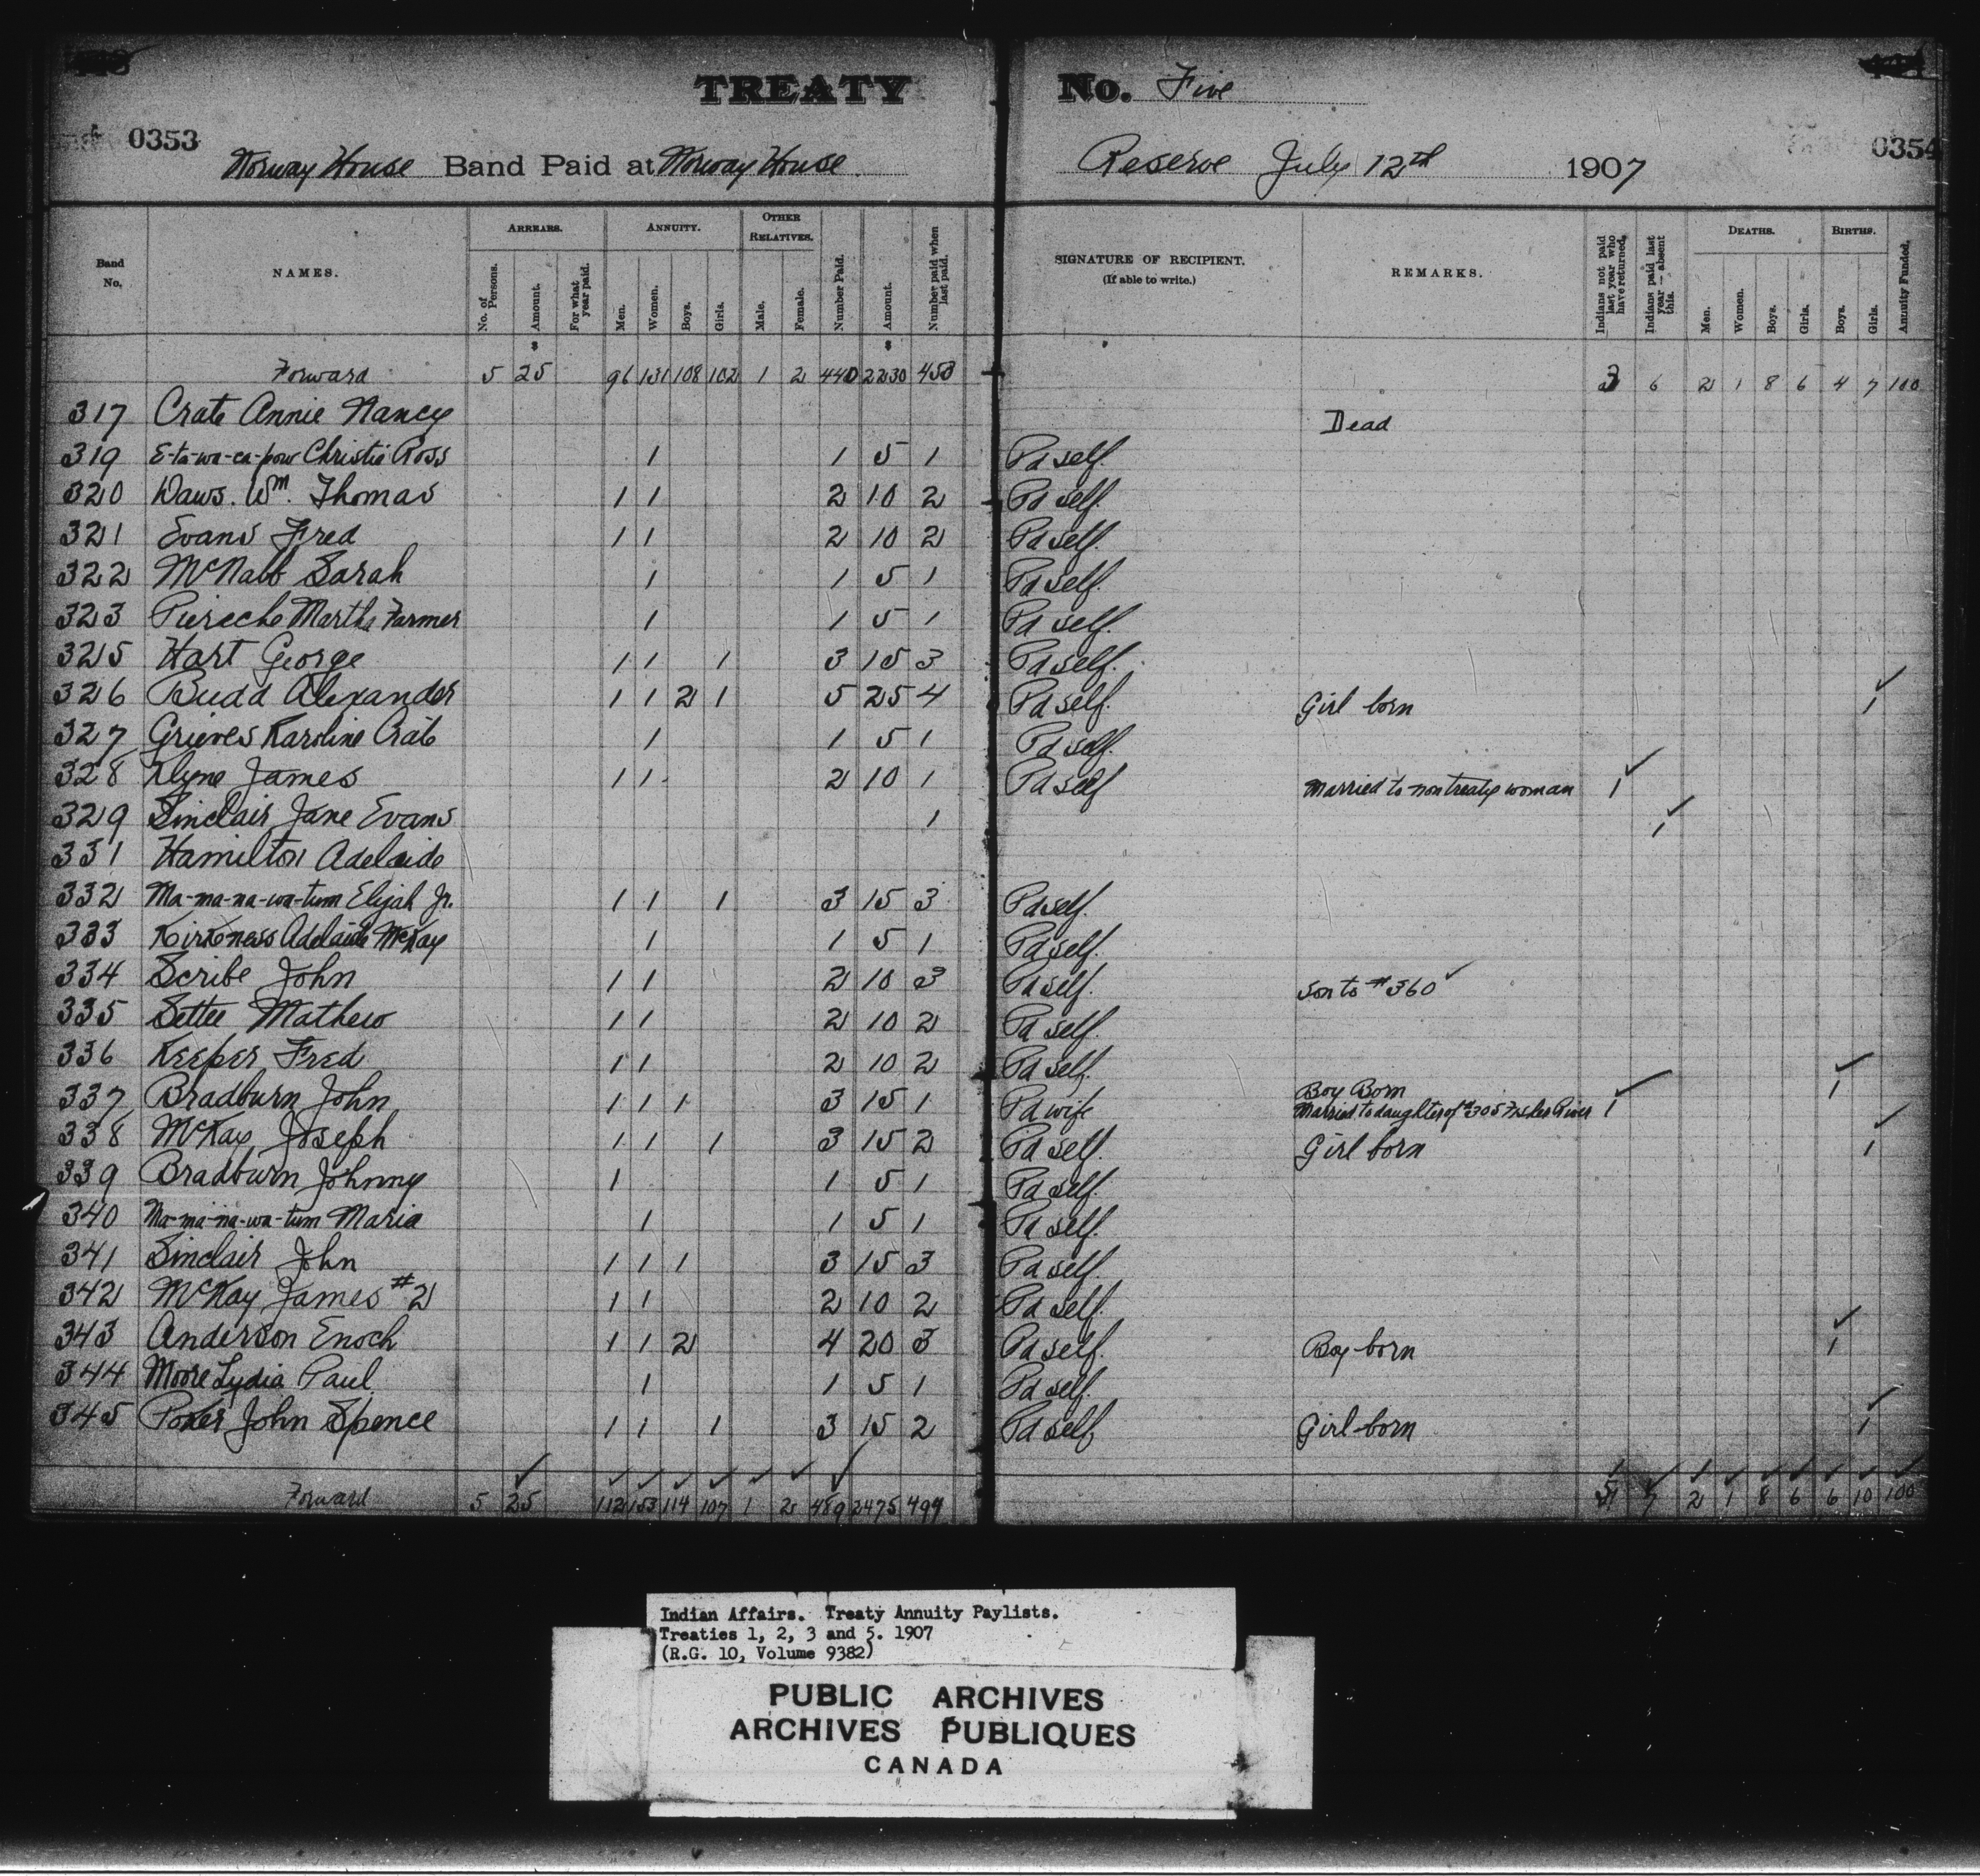 TREATY No. Five
0353 0354
Norway House Band Paid at Norway House Reserve July 12th 1907
Band No. NAMES. ARREARS. No. of Persons. Amount. For what year paid. ANNUITY. Men. Women. Boys. Girls. OTHER RELATIVES. Male. Female. Number Paid. Amount. Number paid when last paid. SIGNATURE OF RECIPIENT. (If able to write.) REMARKS. Indians not paid last year who have returned. Indians paid last year — absent this. DEATHS. Men. Women. Boys. Girls. BIRTHS. Boys. Girls. Annuity Funded.
Forward 5 25 96 131 108 102 1 2 440 2230 453 3 6 2 1 8 6 4 7 100
317 Crate Annie Nancy Dead
319 E-ta-wa-ca-pow Christie Ross 1 1 5 1 Pd self.
320 Daws. Wm. Thomas 1 1 2 10 2 Pd self.
321 Evans Fred 1 1 2 10 2 Pd self.
322 McNabb Sarah 1 1 5 1 Pd self.
323 Martha Farmer 1 1 5 1 Pd self.
325 Hart George 1 1 1 3 15 3 Pd self.
326 Budd Alexander 1 1 2 1 5 25 4 Pd self. Girl born 1
327 Grieves Karoline Crate 1 1 5 1 Pd self.
328 Klyne James 1 1 2 10 1 Pd self Married to non treaty woman 1
329 Sinclair Jane Evans 1 1
331 Hamilton Adelaide
332 Ma-ma-na-wa-tum Elijah Jr. 1 1 1 3 15 3 Pd self.
333 Kirkness Adelaide McKay 1 1 5 1 Pd self.
334 Scribe John 1 1 2 10 3 Pd self. Son to #360
335 Settee Mathew 1 1 2 10 2 Pd self.
336 Keeper Fred 1 1 2 10 2 Pd self.
337 Bradburn John 1 1 1 3 15 1 Pd wife Boy Born 1
Married to daughter of #305 Fisher River 1
338 McKay Joseph 1 1 1 3 15 2 Pd self. Girl born 1
339 Bradburn Johnny 1 1 5 1 Pd self.
340 Ma-ma-na-wa-tum Maria 1 1 5 1 Pd self.
341 Sinclair John 1 1 1 3 15 3 Pd self.
342 McKay James #2 1 1 2 10 2 Pd self.
343 Anderson Enoch 1 1 2 4 20 3 Pd self. Boy born 1
344 Moore Lydia Paul 1 1 5 1 Pd self.
345 John Spence 1 1 1 3 15 2 Pd self Girl born 1
Forward 5 25 112 153 114 107 1 2 489 2475 494 7 2 1 8 6 6 10 100
Indian Affairs. Treaty Annuity Paylists.
Treaties 1, 2, 3 and 5. 1907
(R.G. 10, Volume 9382)
PUBLIC ARCHIVES
ARCHIVES PUBLIQUES
CANADA